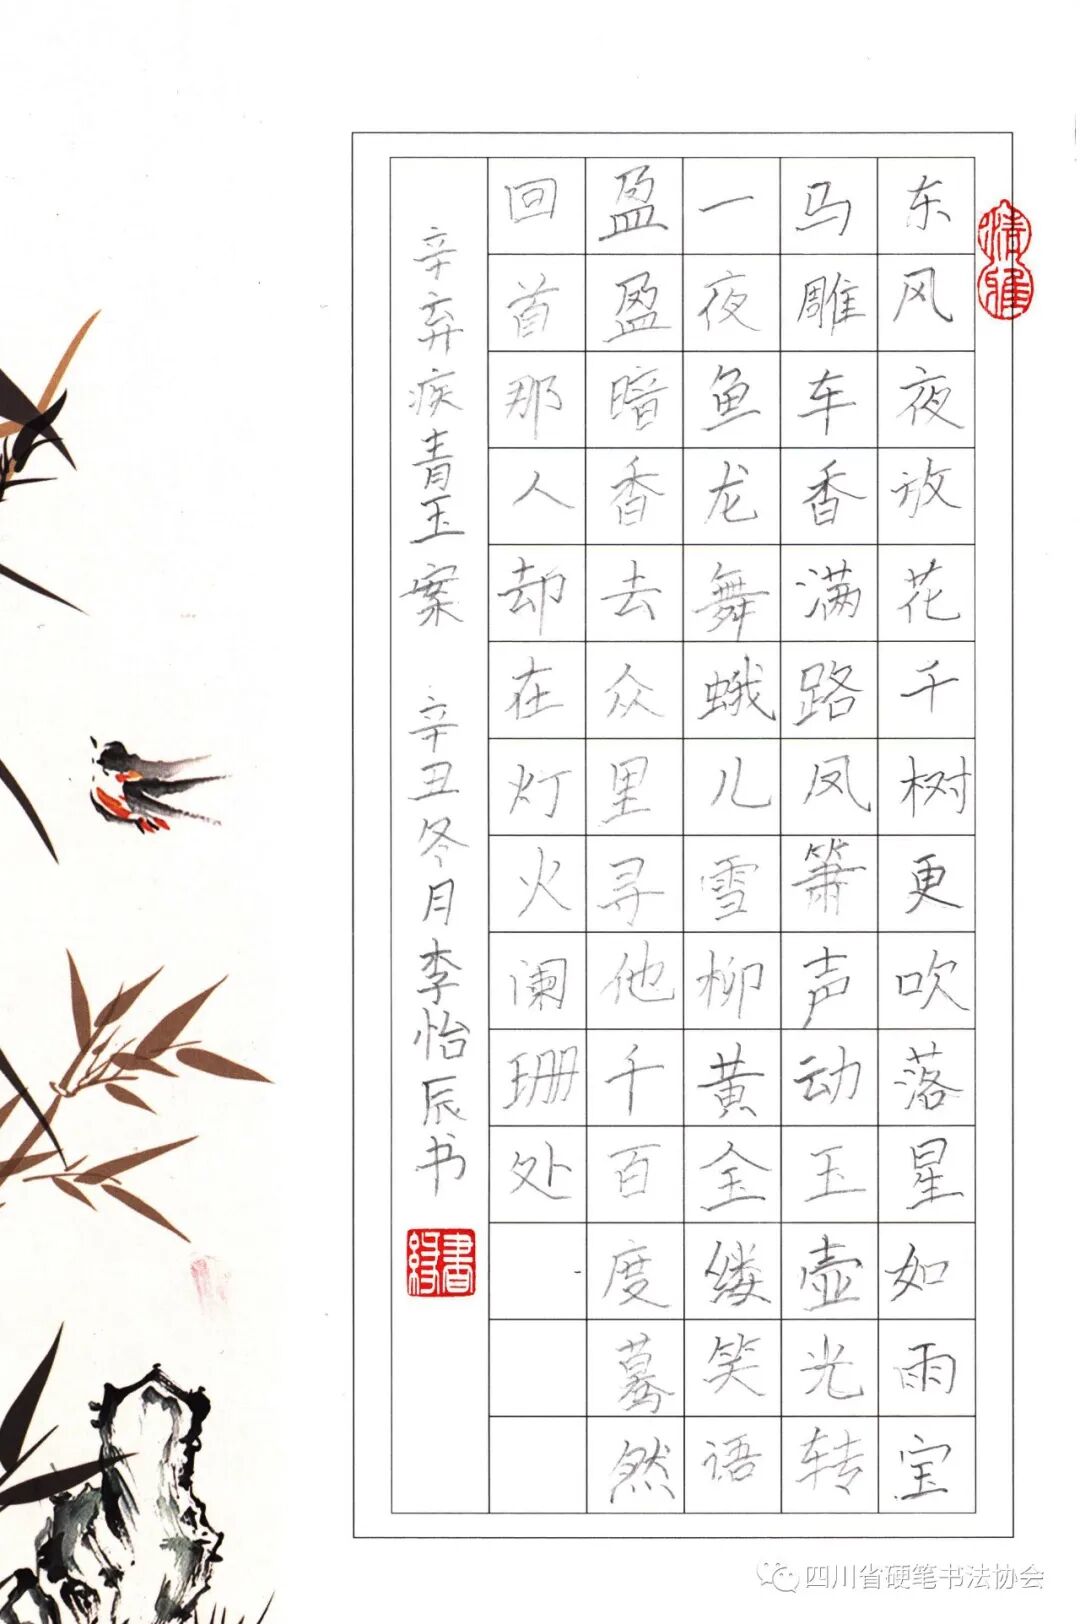 东风夜放花千树更吹落星如雨宝
马雕车香满路凤箫声动玉壶光转
一夜鱼龙舞蛾儿雪柳黄金缕笑语
盈盈暗香去众里寻他千百度蓦然
回首那人却在灯火阑珊处
辛弃疾青玉案 辛丑冬月李怡辰书
清雅
四川省硬笔书法协会